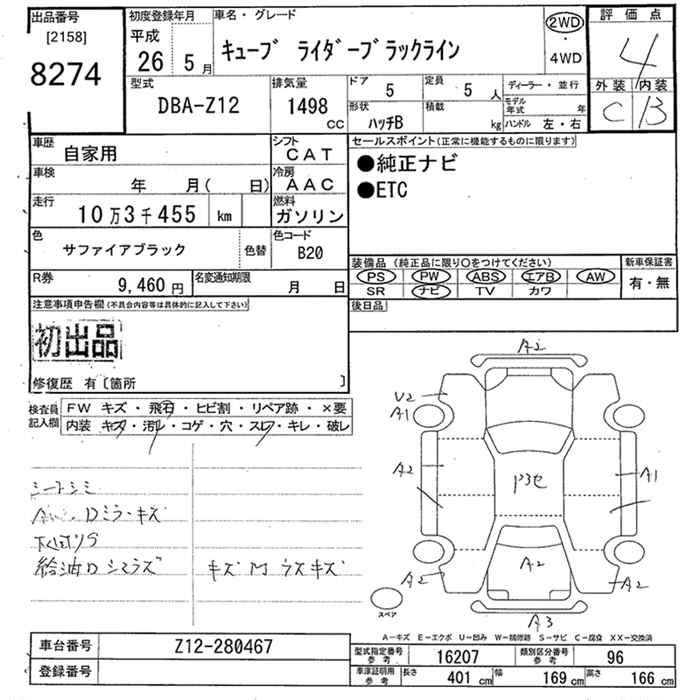 出品番号
[2158]
8274
初度登録年月
平成
26 5月
車名・グレード
キューブ ライダーブラックライン
2WD
・
4WD
評価点
4
外装 内装
C B
型式
DBA-Z12
排気量
1498
CC
ドア
5
定員
5 人
形状
ハッチB
積載
kg
ディーラー・並行
モデル年式 年
ハンドル 左・右
車歴
自家用
シフト
CAT
車検
年 月( 日)
冷房
AAC
走行
10万3千455 km
燃料
ガソリン
色
サファイアブラック
色替
色コード
B20
R券
9,460円
名変通知期限
月 日
セールスポイント(正常に機能するものに限ります)
●純正ナビ
●ETC
装備品(純正品に限り〇をつけてください)
PS PW ABS エアB AW
SR ナビ TV カワ
新車保証書
有・無
後日品
注意事項申告欄(不具合内容等は具体的に記入して下さい)
初出品
修復歴 有〔箇所 〕
検査員記入欄
FW キズ・飛石・ヒビ割・リペア跡・×要
内装 キズ・汚レ・コゲ・穴・スレ・キレ・破レ
シートシミ
Dミラーキズ
キズM ラズキズ
A2
U2
A1
A2
P3セ
A1
A2
A2
A2
A3
スペア
A-キズ E-エクボ U-凹み W-補修跡 S-サビ C-腐食 XX-交換済
車台番号
Z12-280467
登録番号
型式指定番号 参考
16207
類別区分番号 参考
96
車庫証明用 参考
長さ 401 cm 幅 169 cm 高さ 166 cm